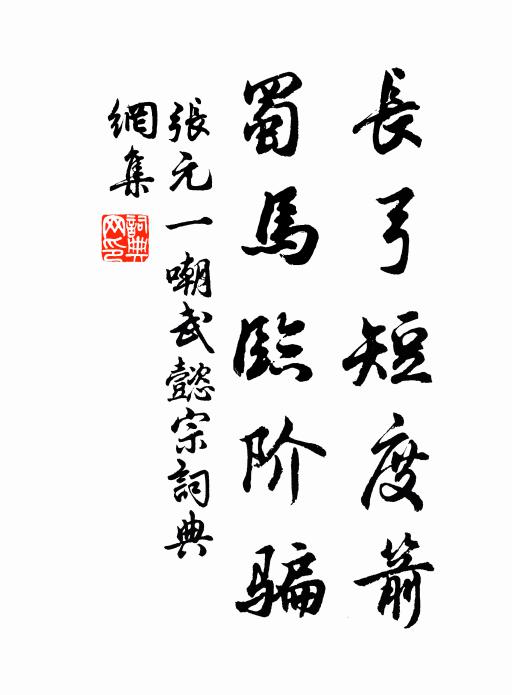 長弓短度箭
蜀馬臨阶騙
張元一嘲武懿宗詞典
網集
詞典网印